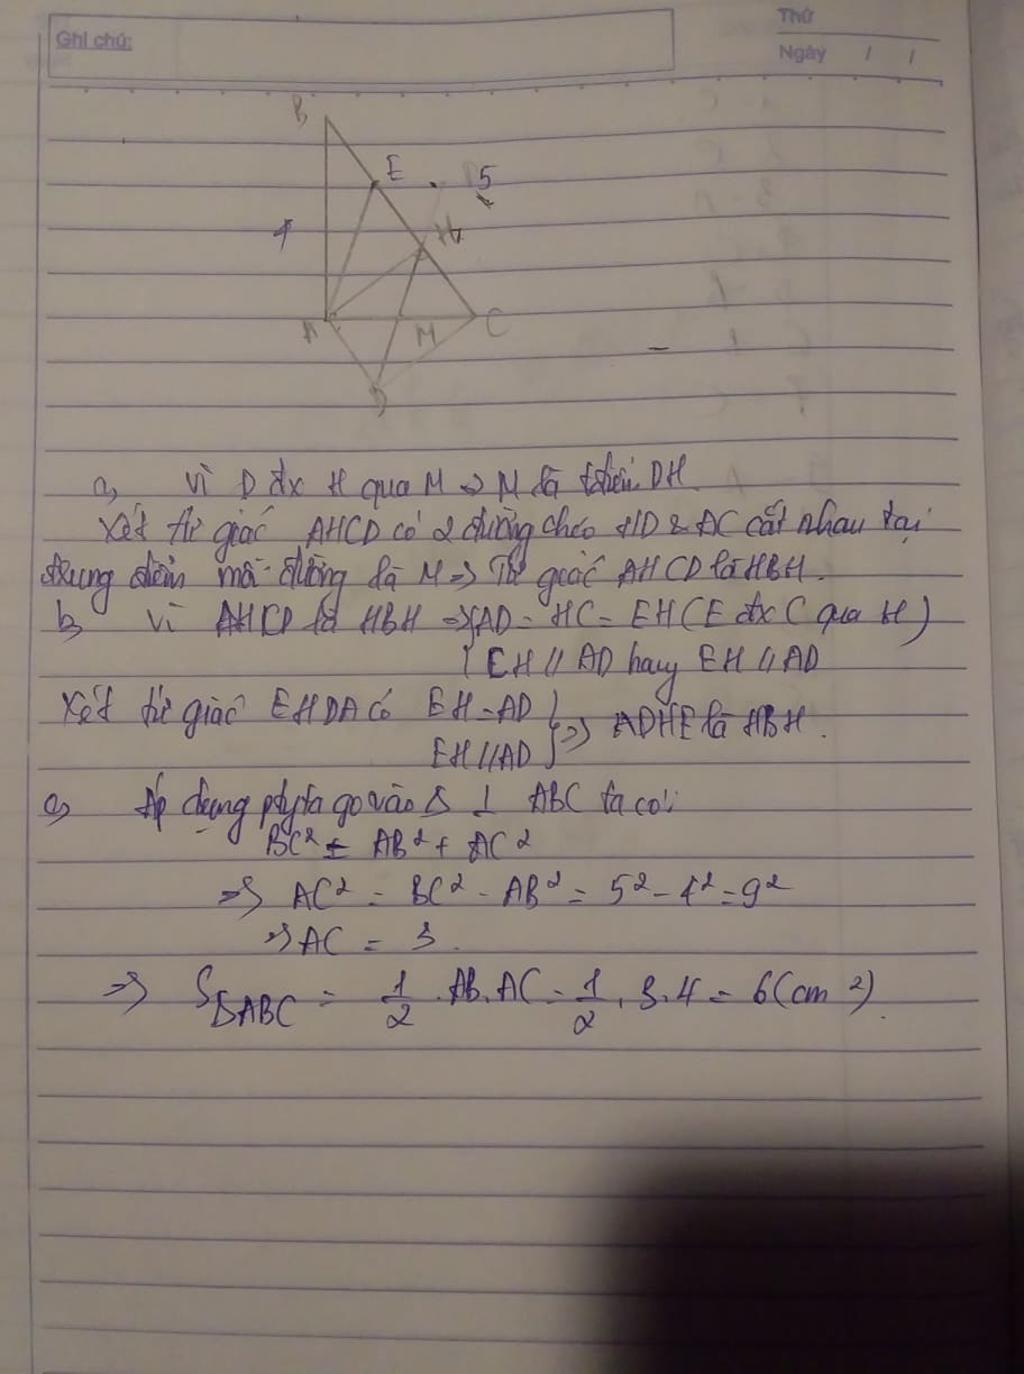 Ghi chú:
Thứ
Ngày / /
B
E
5
4
H
A
M
C
D
a, Vì D đx H qua M => M là tđiểm DH.
Xét tứ giác AHCD có 2 đường chéo HD & AC cắt nhau tại
trung điểm mỗi đường là M => Tứ giác AHCD là HBH.
b, Vì AHCD là HBH => { AD = HC = EH (E đx C qua H)
{ EH // AD hay EH // AD
Xét tứ giác EHDA có EH = AD } => ADHE là HBH.
EH // AD
c, Áp dụng pytago vào Δ ⊥ ABC ta có:
BC² = AB² + AC²
=> AC² = BC² - AB² = 5² - 4² = 9²
=> AC = 3.
=> SΔABC = 1/2 . AB. AC = 1/2 . 3.4 = 6 (cm²).